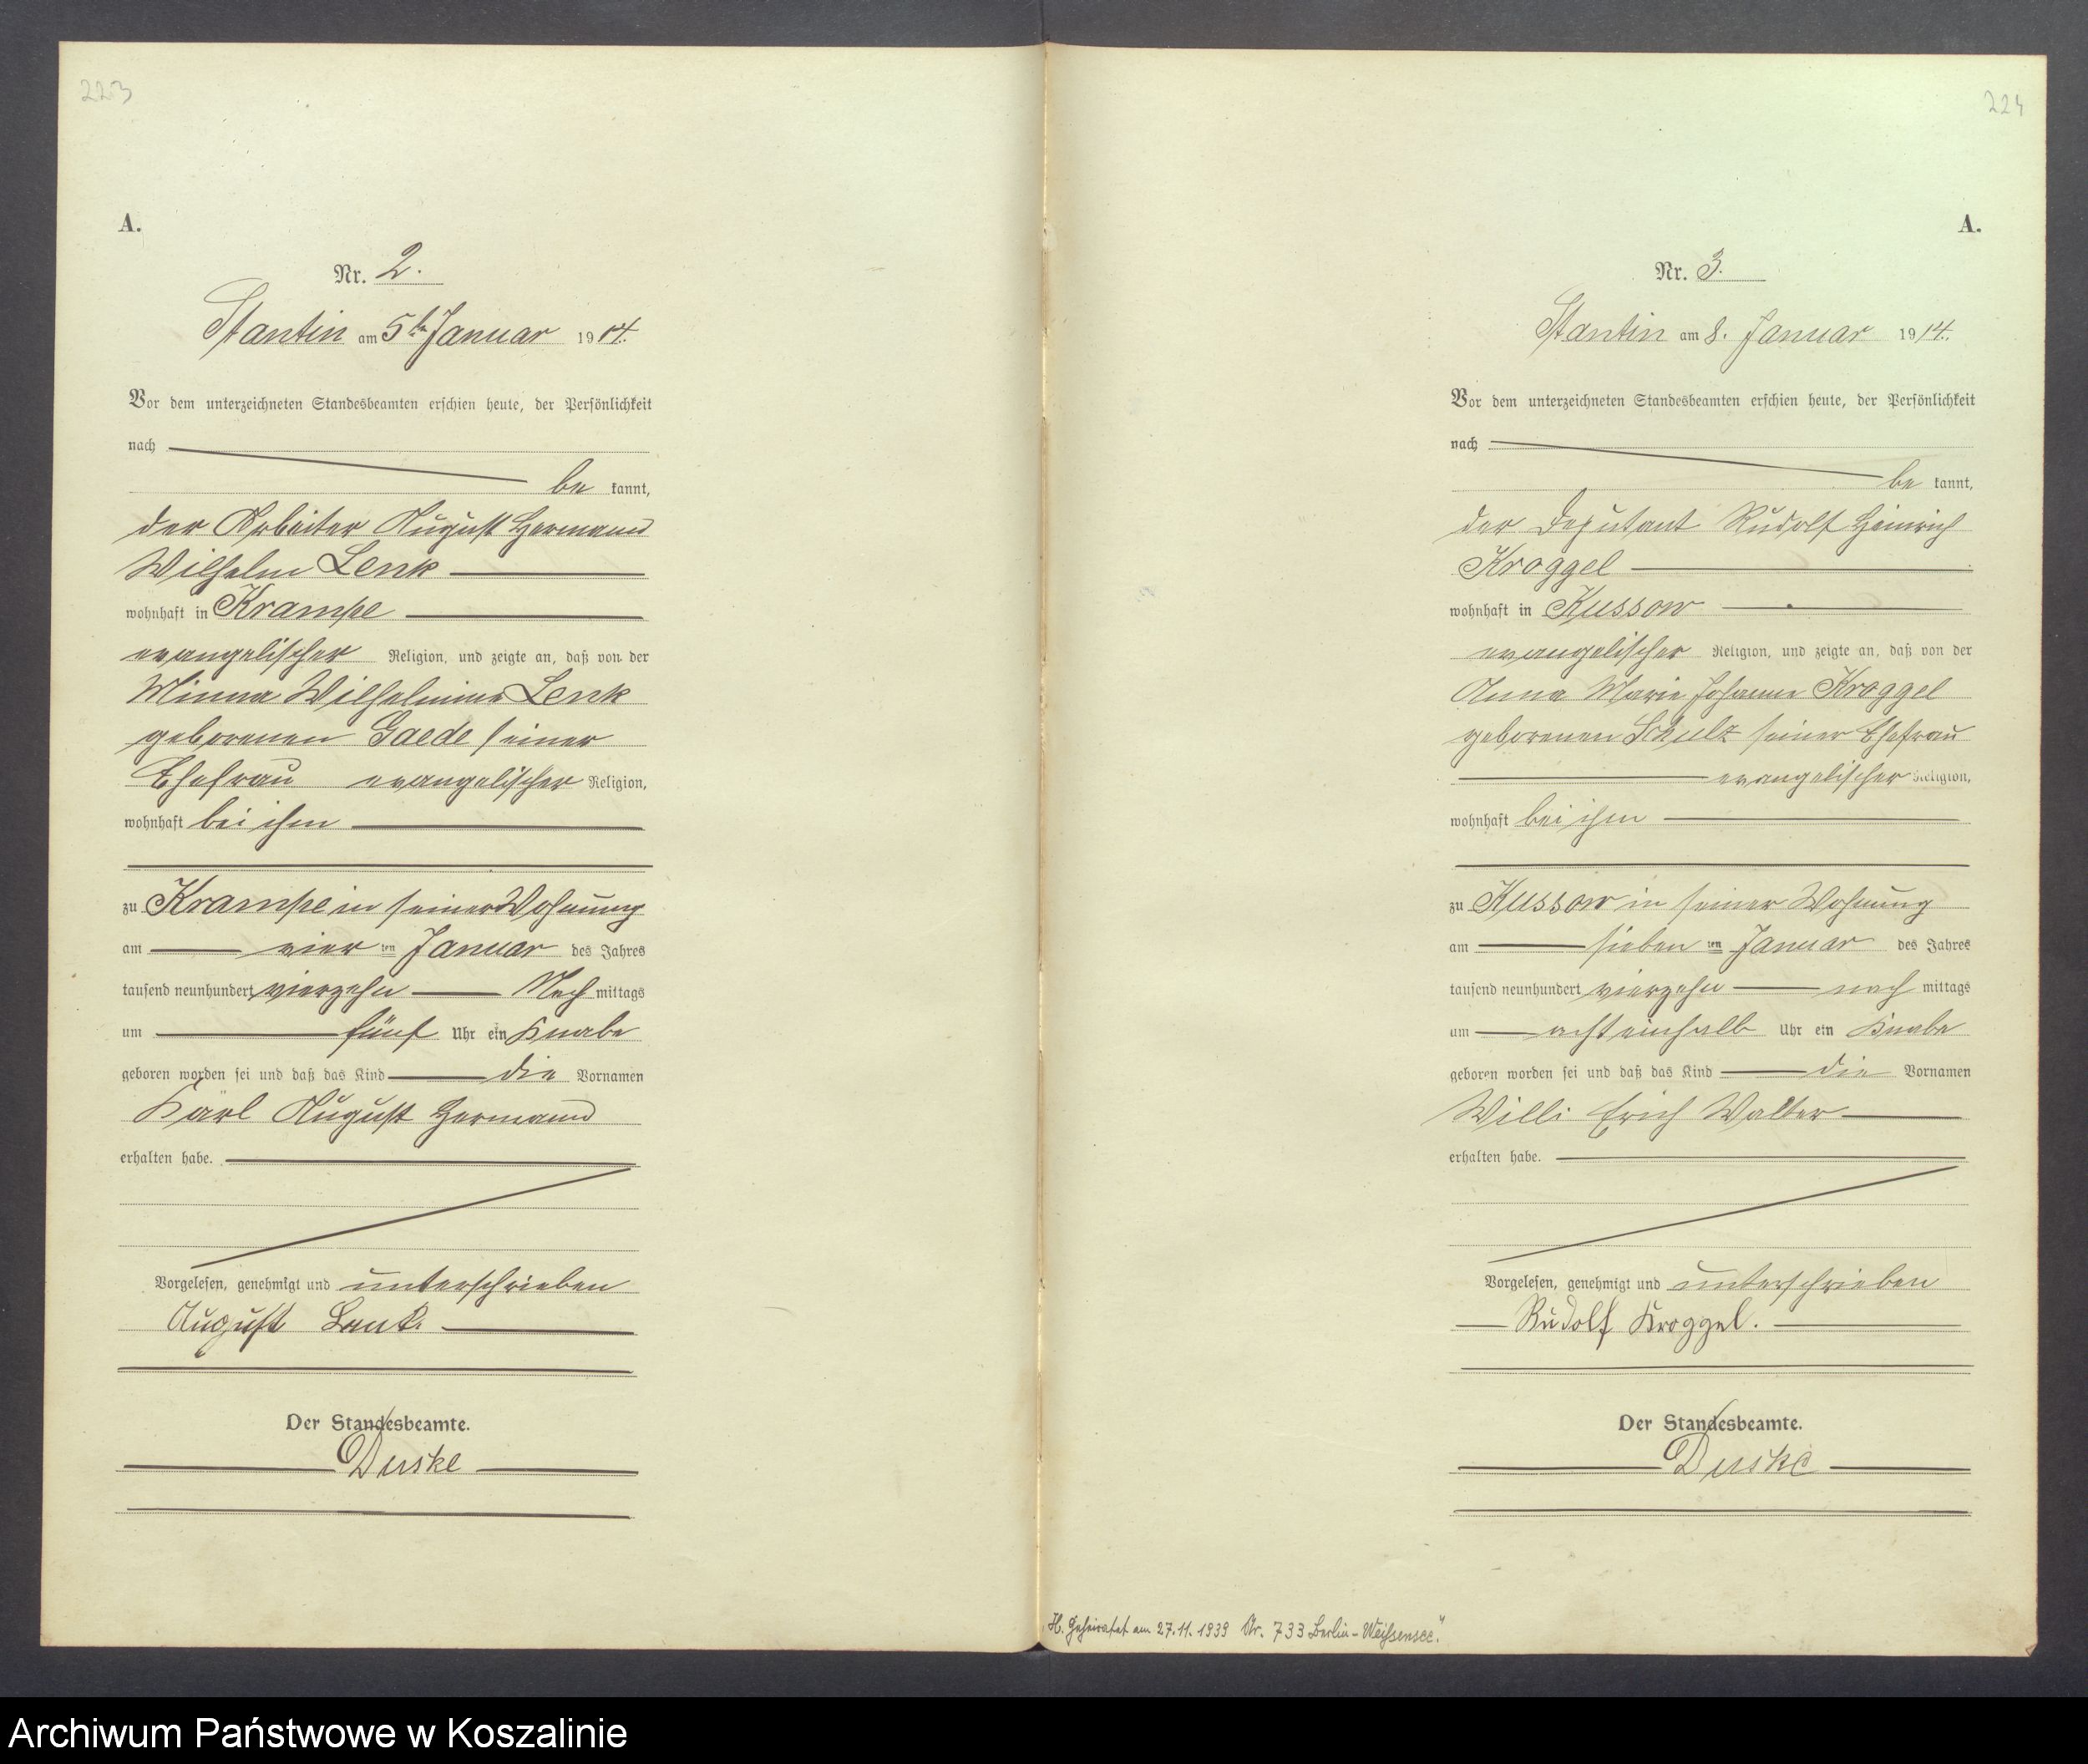 223
A.
Nr. 2.
Stantin am 5ten Januar 1914.
Vor dem unterzeichneten Standesbeamten erschien heute, der Persönlichkeit
nach
be kannt,
der Arbeiter August Hermann
Wilhelm Lenk
wohnhaft in Krampe
evangelischer Religion, und zeigte an, daß von der
Minna Wilhelmine Lenk
geborenen Gaede seiner
Ehefrau evangelischer Religion,
wohnhaft bei ihm
zu Krampe in seiner Wohnung
am vier ten Januar des Jahres
tausend neunhundert vierzehn Nach mittags
um fünf Uhr ein Knabe
geboren worden sei und daß das Kind die Vornamen
Karl August Hermann
erhalten habe.
Vorgelesen, genehmigt und unterschrieben
August Lenk.
Der Standesbeamte.
Duske
224
A.
Nr. 3.
Stantin am 8. Januar 1914.
Vor dem unterzeichneten Standesbeamten erschien heute, der Persönlichkeit
nach
be kannt,
der Deputant Rudolf Heinrich
Kroggel
wohnhaft in Kussow
evangelischer Religion, und zeigte an, daß von der
Anna Marie Johanne Kroggel
geborenen Schulz seiner Ehefrau
evangelischer Religion,
wohnhaft bei ihm
zu Kussow in seiner Wohnung
am sieben ten Januar des Jahres
tausend neunhundert vierzehn nach mittags
um acht einhalb Uhr ein Knabe
geboren worden sei und daß das Kind die Vornamen
Willi Erich Walter
erhalten habe.
Vorgelesen, genehmigt und unterschrieben
Rudolf Kroggel.
Der Standesbeamte.
Duske
H. Geheiratet am 27.11.1939 Nr. 733 Berlin-Weißensee."
Archiwum Państwowe w Koszalinie